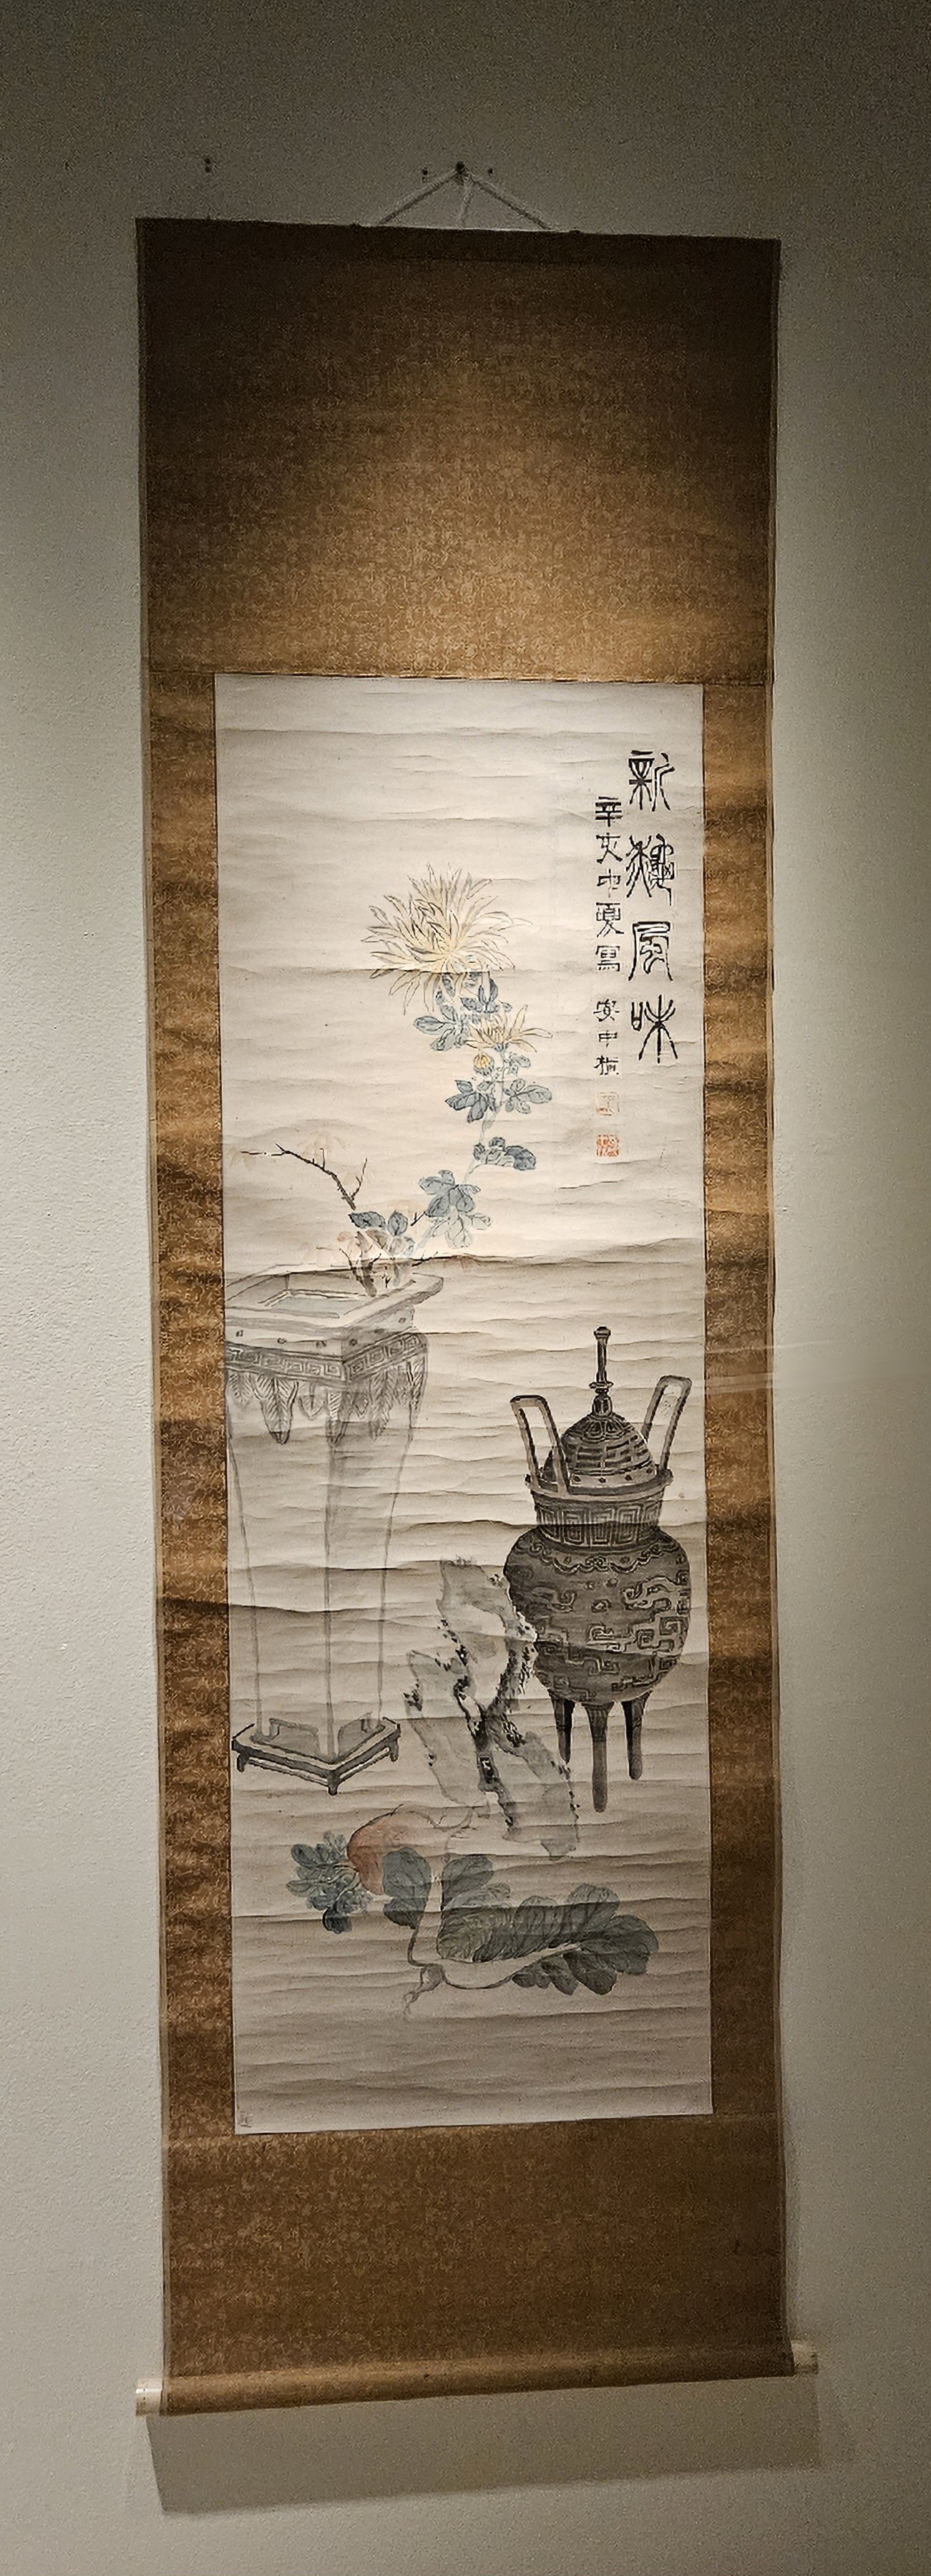 新龝風味
辛亥中夏寫 安中植